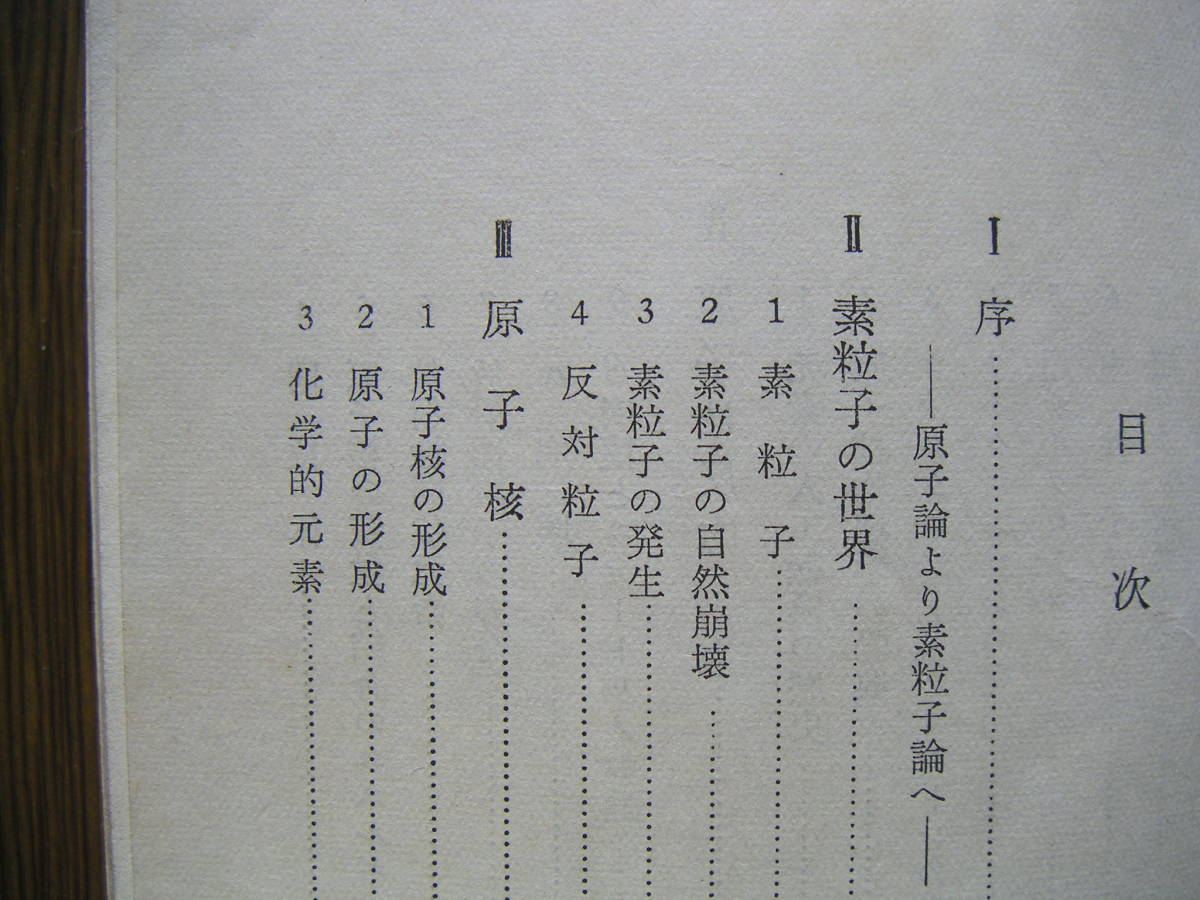 目次
Ⅰ 序
――原子論より素粒子論へ――
Ⅱ 素粒子の世界
1 素粒子
2 素粒子の自然崩壊
3 素粒子の発生
4 反対粒子
Ⅲ 原子核
1 原子核の形成
2 原子の形成
3 化学的元素